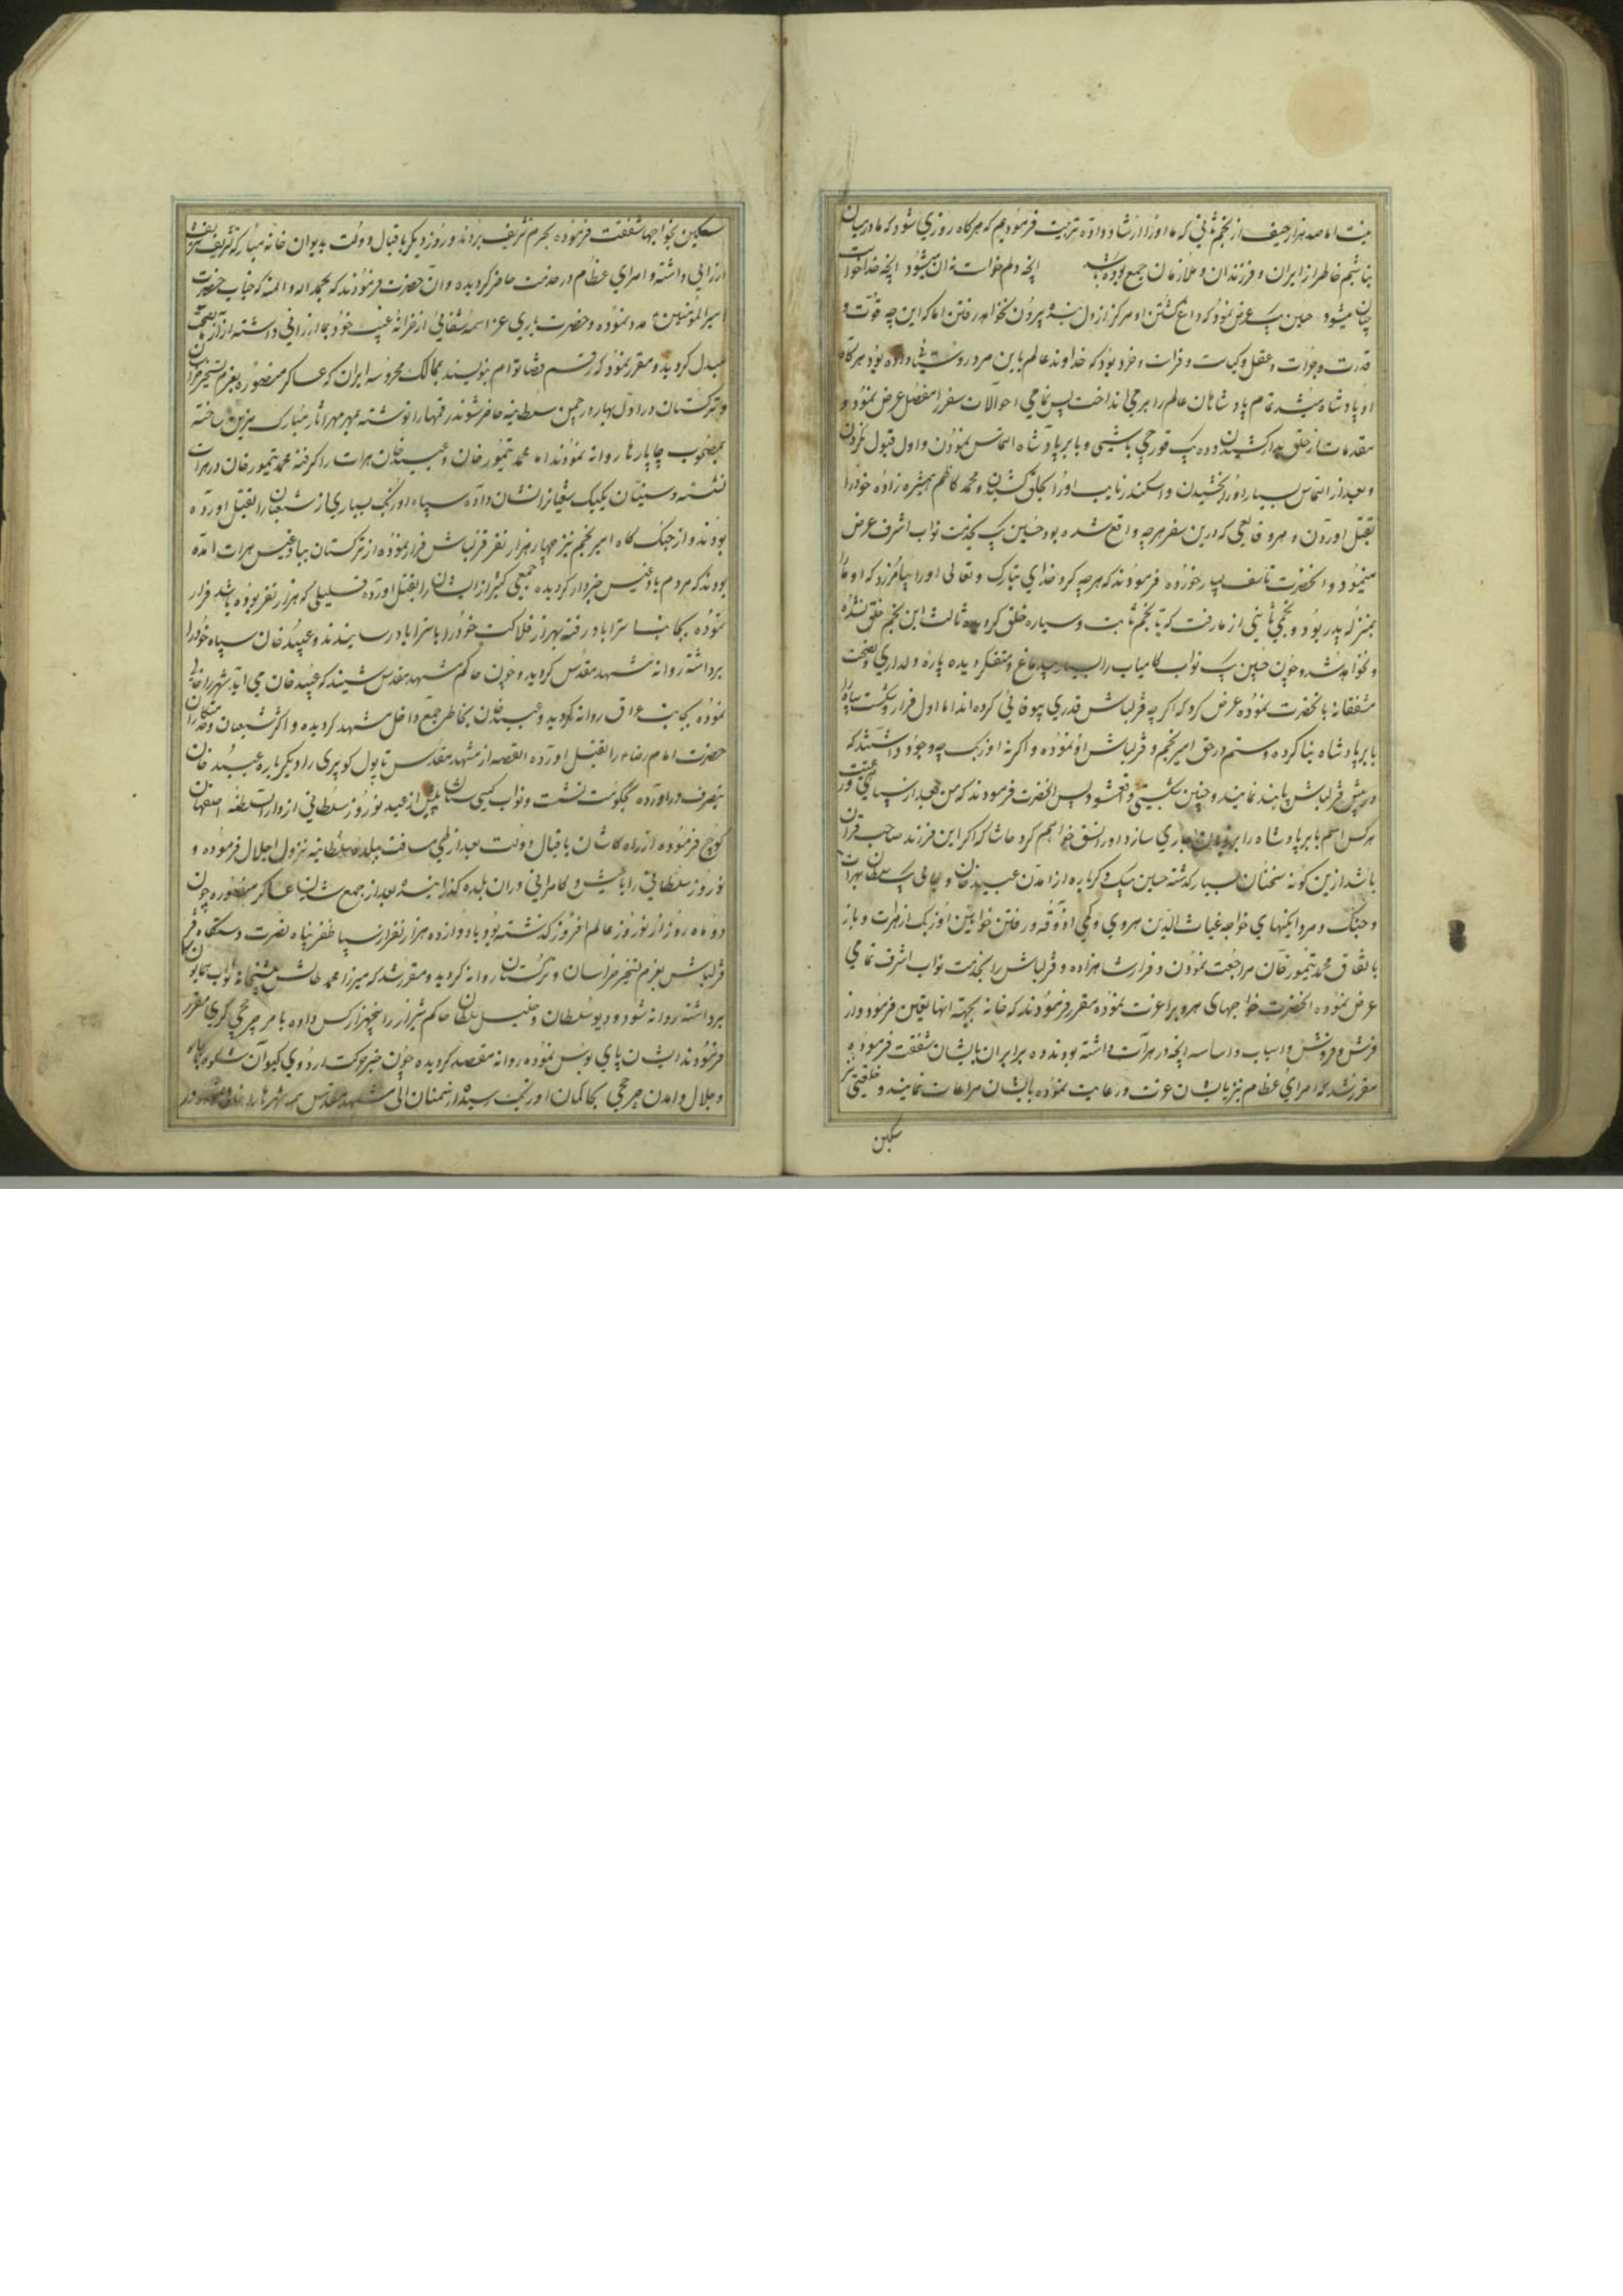 نیست اما صد هزار حیف از نجم ثانی که ما او را ارشاد داده تربیت فرمودیم که هرگاه روزی شود که ما در میان
نباشیم خاطر از ایران و فرزندان و ملازمان جمع بوده باشد آنچه دلم خواست نه آن میشود آنچه خدا خواست
چنان میشود حسین بیک عرض نمود که داغ کشتن او هرگز از دل بنده بیرون نخواهد رفتن اما که این چه قوت و
قدرت و جرات و عقل و کیاست و فراست و خرد بود که خداوند عالم باین مرد روستائی داده بود هرگاه
او پادشاه میشد تمام پادشاهان عالم را بر می انداخت پس تمامی احوالات سفر را مفصل عرض نمود و
مقدمات از خلق کشیدن ده ده بیک قورچی باشی و بابر پادشاه التماس نمودن و اول قبول نکردن
و بعد از التماس بسیار او را بخشیدن و اسکندر نایب او را بحلق کشیدن و محمد کاظم همشیره زاده خود را
بقتل آوردن و هر وقایعی که درین سفر هر چه واقع شده بود حسین بیک بخدمت نواب اشرف عرض
مینمود و آنحضرت تاسف بسیار خورده فرمودند که هر چه کرد خدای تبارک و تعالی او را بیامرزد که او ما را
بمنزله پدر بود و نجمی ثانی از ما رفت که تا نجم ثابت و سیاره خلق کرده ثالث این نجم خلق نشده
و نخواهد شد و چون حسین بیک نواب کامیاب را بسیار بیدماغ و متفکر دیده پاره دلداری و نصیحت
مشفقانه با آنحضرت نموده عرض کرد که اگر چه قزلباش قدری بیوفائی کرده اند اما اول فرار و شکست سپاه را
بابر پادشاه بنا کرده و ستم در حق امیر نجم و قزلباش او نموده و اگر نه اوزبک چه وجود داشتند که
در پیش قزلباش پا بند نمایند و چنین شکستی واقع شود پس آنحضرت فرمودند که من بعد از سپاهی و رعیت
هر کس اسم بابر پادشاه را بر زبان جاری سازد او را نسق خواهم کرد حاشا که اگر این فرزند صاحب قران
باشد ازین گونه سخنان بسیار گذشته حسین بیک دگر باره از آمدن عبید خان و جانی بیک سلطان بهرات
و جنگ و مردانگیهای خواجه غیاث الدین هروی و کمی آذوقه و رفتن خوانین اوزبک از هرات و باز
باتفاق محمد تیمور خان مراجعت نمودن و فرار شاهزاده و قزلباش را بخدمت نواب اشرف تمامی
عرض نموده آنحضرت خواجهای هرویرا عزت نموده مقرر فرمودند که خانه بجهة آنها تعیین فرمود و از
فرش و فروش و اسباب و اساسه آنچه در هرات داشته بودند ده برابر آن بایشان شفقت فرموده
مقرر شد که امرای عظام نیز بایشان عزت و رعایت نموده بایشان مراعات نمایند و خلعتی نیز
سکین
سکین بخواجها شفقت فرموده بحرم تشریف بردند و روز دیگر باقبال و دولت بدیوان خانه مبارکه تشریف شریف
ارزانی داشته و امرای عظام در خدمت حاضر گردیده و آن حضرت فرمودند که بحمد الله و المنه که جناب حضرت
امیر المؤمنین مدد نموده و حضرت باری عز اسمه شفائی از خزانه غیب خود بما ارزانی داشته آزار ما بصحت
مبدل گردید و مقرر نمود که رقم قضا توام بنویسند بممالک محروسه ایران که عساکر منصوره بعزم تسخیر خراسان
و ترکستان در اول بهار در چمن سلطانیه حاضر شوند رقمها را نوشته بمهر مهر آثار مبارک مزین ساخته
بمصحوب چاپارها روانه نمودند اما محمد تیمور خان و عبید خان هرات را گرفته محمد تیمور خان در هرات
نشسته و سنیان یکیک شیعیانرا نشان داده سپاه اوزبک بسیاری از شیعیان را بقتل آورده
بودند و از جنگ گاه امیر نجم نیز چهار هزار نفر قزلباش فرار نموده از ترکستان ببادغیس هرات آمده
بودند که مردم بادغیس خبردار گردیده جمعی کثیر از ایشان را بقتل آورده قلیلی که هزار نفر بوده باشد فرار
نموده بجانب استراباد رفته بهزار فلاکت خود را باستراباد رسانیدند و عبید خان سپاه خود را
برداشته روانه مشهد مقدس گردید و چون حاکم مشهد مقدس شنید که عبید خان می آید شهر را خالی
نموده بجانب عراق روانه گردید و عبید خان بخاطر جمع داخل مشهد گردیده و اکثر شیعیان و خدمتکاران
حضرت امام رضا را بقتل آورده القصه از مشهد مقدس تا پول کوپری را دیگر باره عبید خان
بتصرف درآورده بحکومت نشست و نواب گیتی ستان قبل از عید نوروز سلطانی از دار السلطنه اصفهان
کوچ فرموده از راه کاشان باقبال و دولت بعد از طی مسافت ببلده سلطانیه نزول اجلال فرموده و
نوروز سلطانی را با عیش و کامرانی در آن بلده گذرانیده بعد از جمع شدن عساکر منصوره چون
دو ماه روز از نوروز عالم افروز گذشته بود با دوازده هزار نفر از سپاه ظفر پناه نصرت دستگاه
قزلباش بعزم تسخیر خراسان و ترکستان روانه گردید و مقرر شد که میرزا محمد طالش پیشخانه نواب همایون
برداشته روانه شود و دیو سلطان و خلیل سلطان حاکم شیراز را پنجهزار کس داده بامر چرخچی گری مقرر
فرمودند ایشان پای بوس نموده روانه مقصد گردیده چون خبر حرکت اردوی کیوان شکوه بجاه
و جلال و آمدن چرخچی بحاکمان اوزبک رسید از سمنان الی مشهد مقدس همه شهرها را خالی نموده در